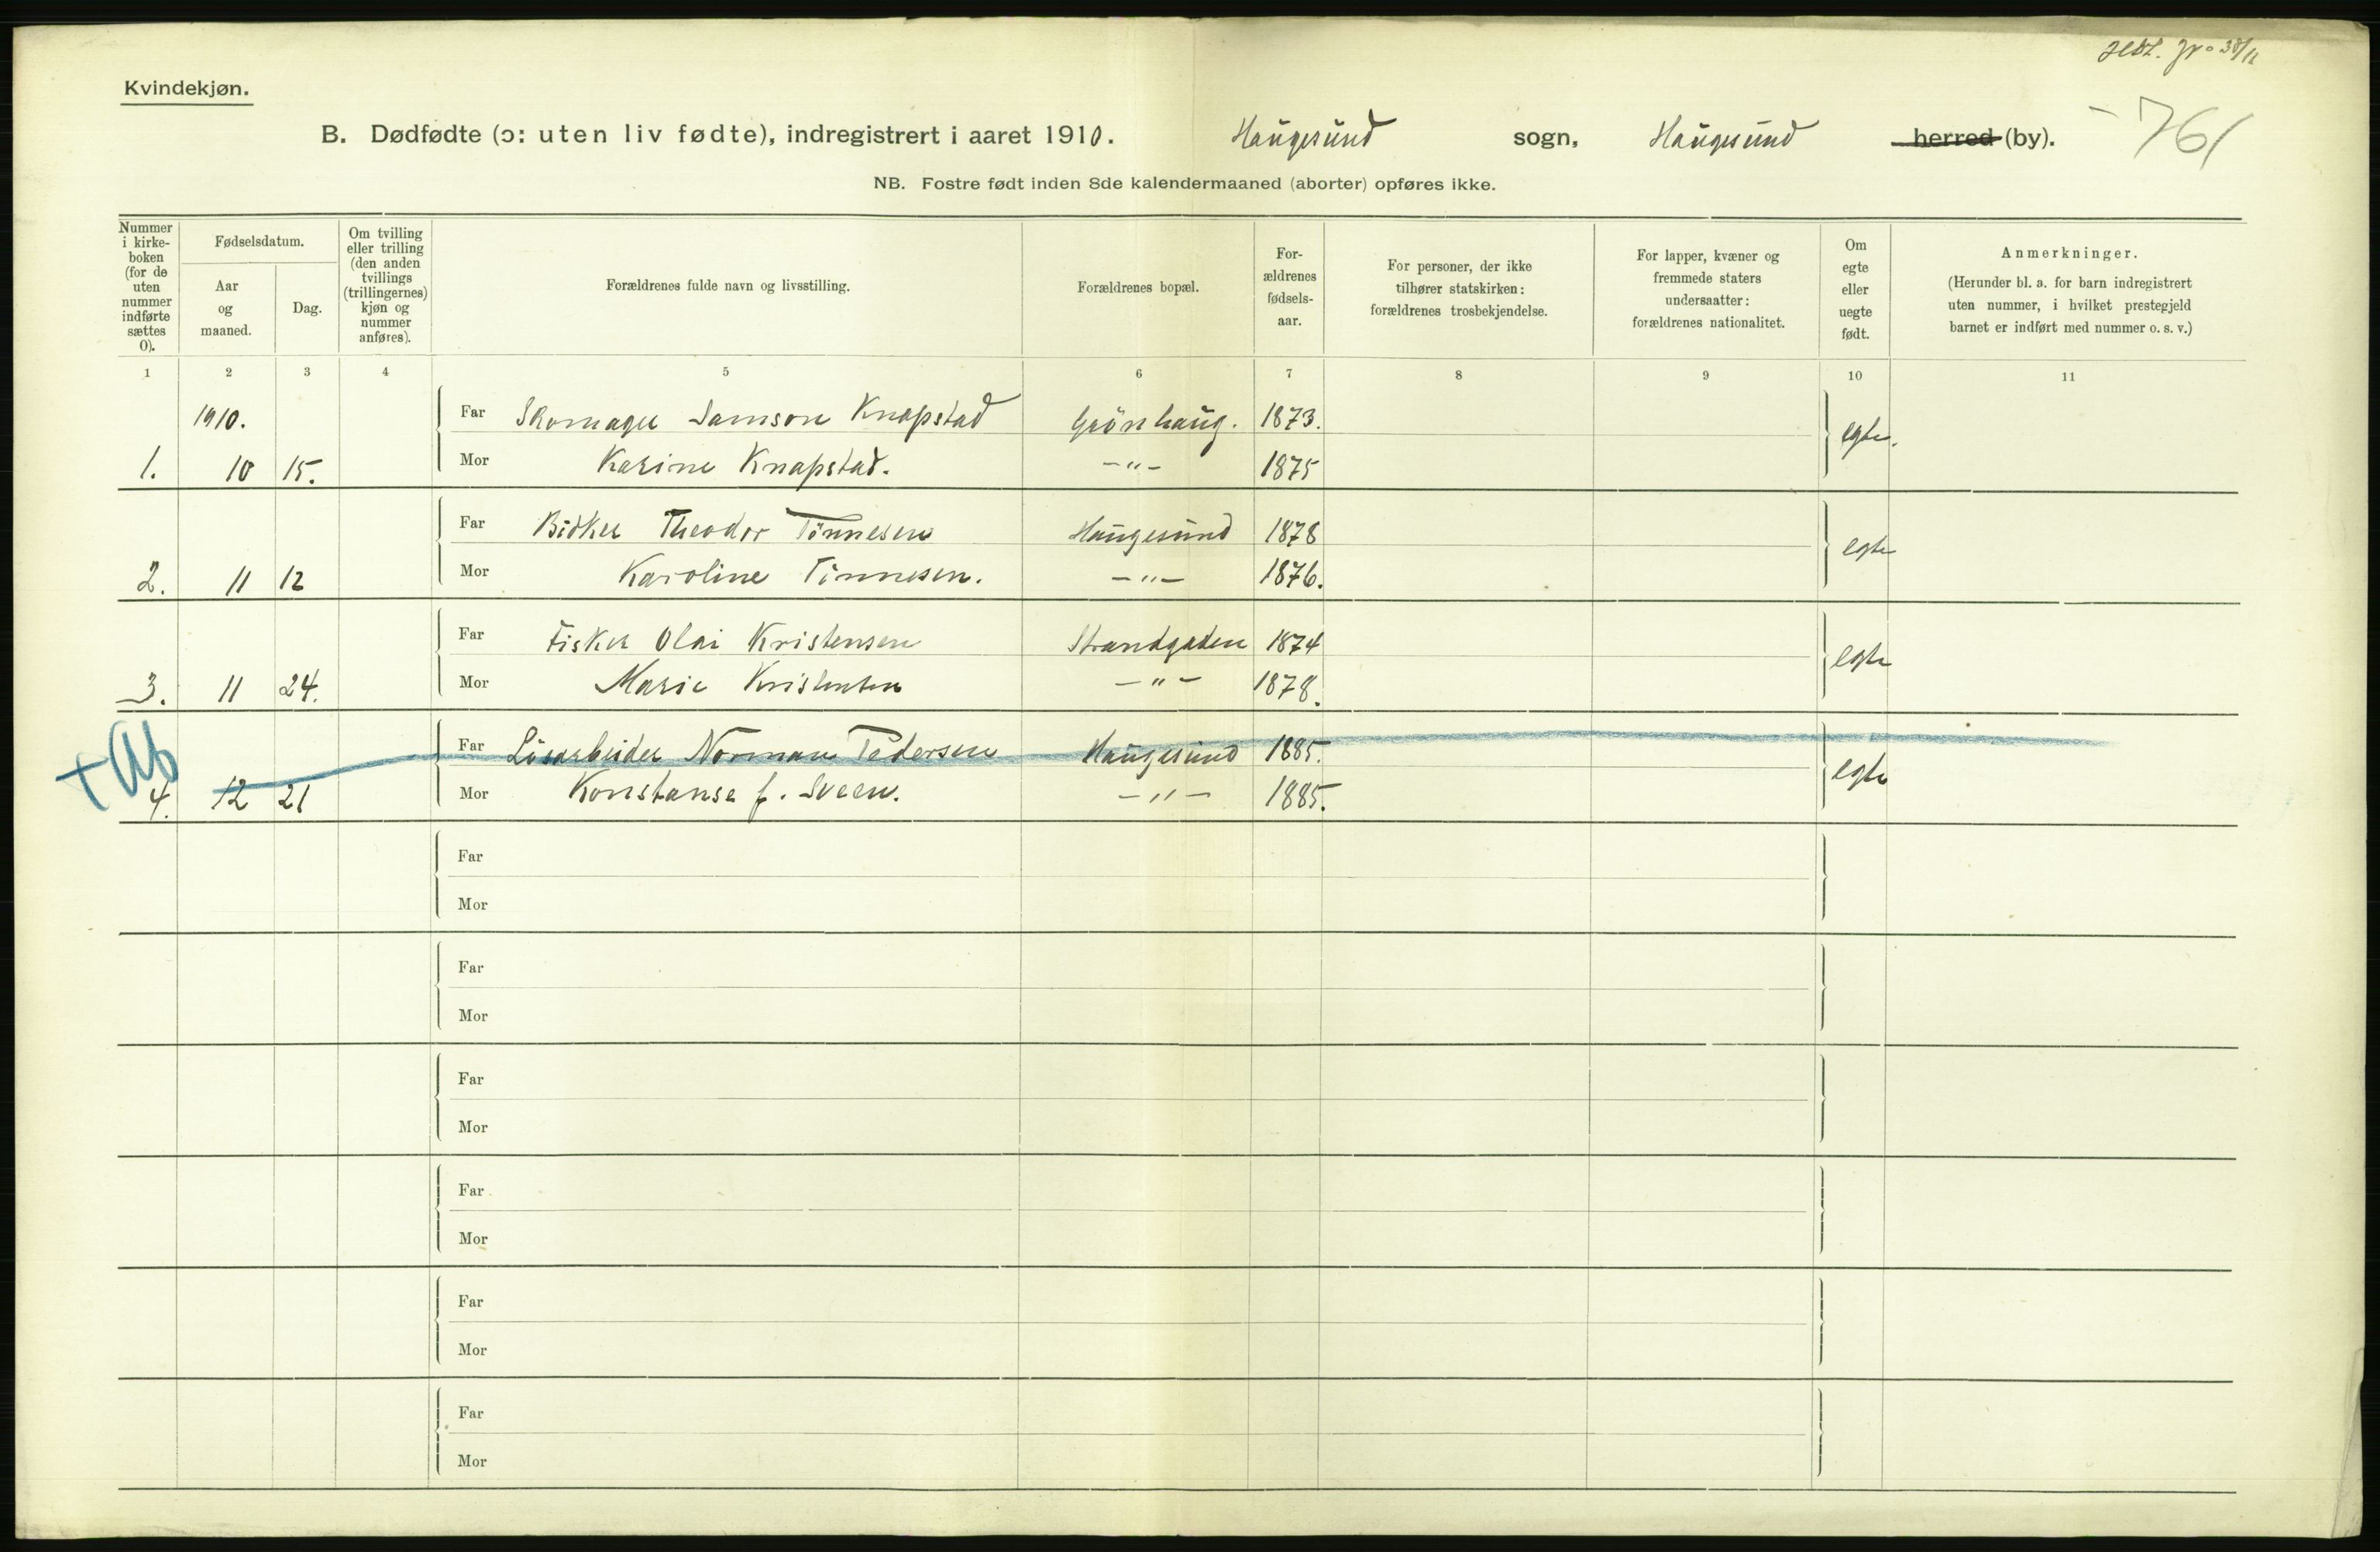 Kvindekjøn.
B. Dødfødte (ɔ: uten liv fødte), indregistrert i aaret 1910. Haugesund sogn, Haugesund herred (by). 761
NB. Fostre født inden 8de kalendermaaned (aborter) opføres ikke.
Nummer i kirkeboken (for de uten nummer indførte sættes 0).
Fødselsdatum.
Aar og maaned.
Dag.
Om tvilling eller trilling (den anden tvillings (trillingernes) kjøn og nummer anføres).
Forældrenes fulde navn og livsstilling.
Forældrenes bopæl.
Forældrenes fødselsaar.
For personer, der ikke tilhører statskirken: forældrenes trosbekjendelse.
For lapper, kvæner og fremmede staters undersaatter: forældrenes nationalitet.
Om egte eller uegte født.
Anmerkninger.
(Herunder bl. a. for barn indregistrert uten nummer, i hvilket prestegjeld barnet er indført med nummer o. s. v.)
1 2 3 4 5 6 7 8 9 10 11
1910. Far Skomager Samson Knapstad Grönhaug. 1873. egte.
1. 10 15. Mor Karine Knapstad. -"- 1875
Far Bödker Theodor Tönnesen Haugesund 1878 egte
2. 11 12 Mor Karoline Tönnesen. -"- 1876.
Far Fisker Olai Kristensen Strandgaden 1874 egte
3. 11 24. Mor Marie Kristensen -"- 1878.
Far Lösarbeider Norman Pedersen Haugesund 1885. egte
4. 12 21 Mor Konstanse f. Sveen. -"- 1885.
Far
Mor
Far
Mor
Far
Mor
Far
Mor
Far
Mor
Far
Mor